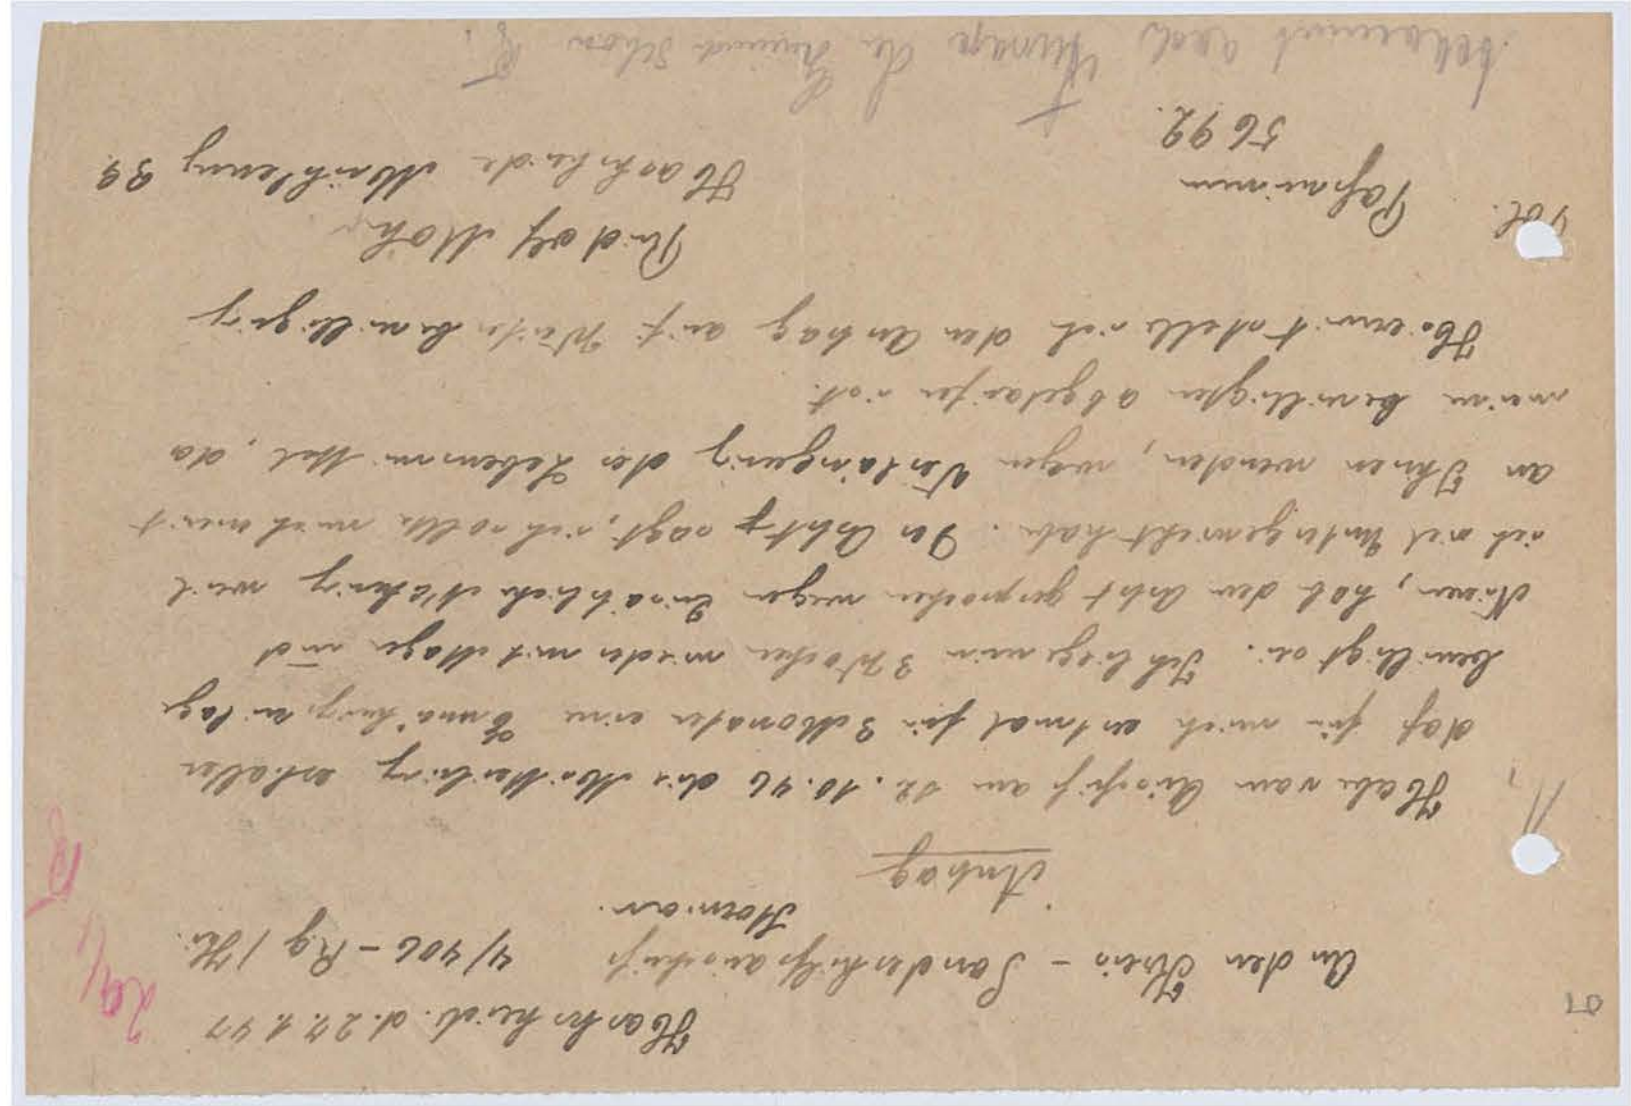 Harksheide. d. 27.1.47
An den Kreis - Sonderhilfsausschuß 4/406 - Rg / Hi.
Antrag
Habe vom Ausschuß am 12.10.46 die Mitteilung erhalten
daß für mich erstmal für 3 Monaten eine Ernährungszulage
bewilligt sei. Ich liege nun 3 Wochen wieder mit Magen und
Nieren, hab den Arbst gesprochen wegen Zusätzliche Nährung weil
ich viel Untergewicht habe. Der Arbst sagt, ich solle mich merst
an Ihnen wenden, wegen Verlängerung der Lebensmittel, da
meine bewilligten abgelaufen ist.
Hiermit stelle ich den Antrag auf Weiterbewilligung
Rudolf Moh
Harksheide Mühlenweg 39.
Pol.
5692.
29/1
07